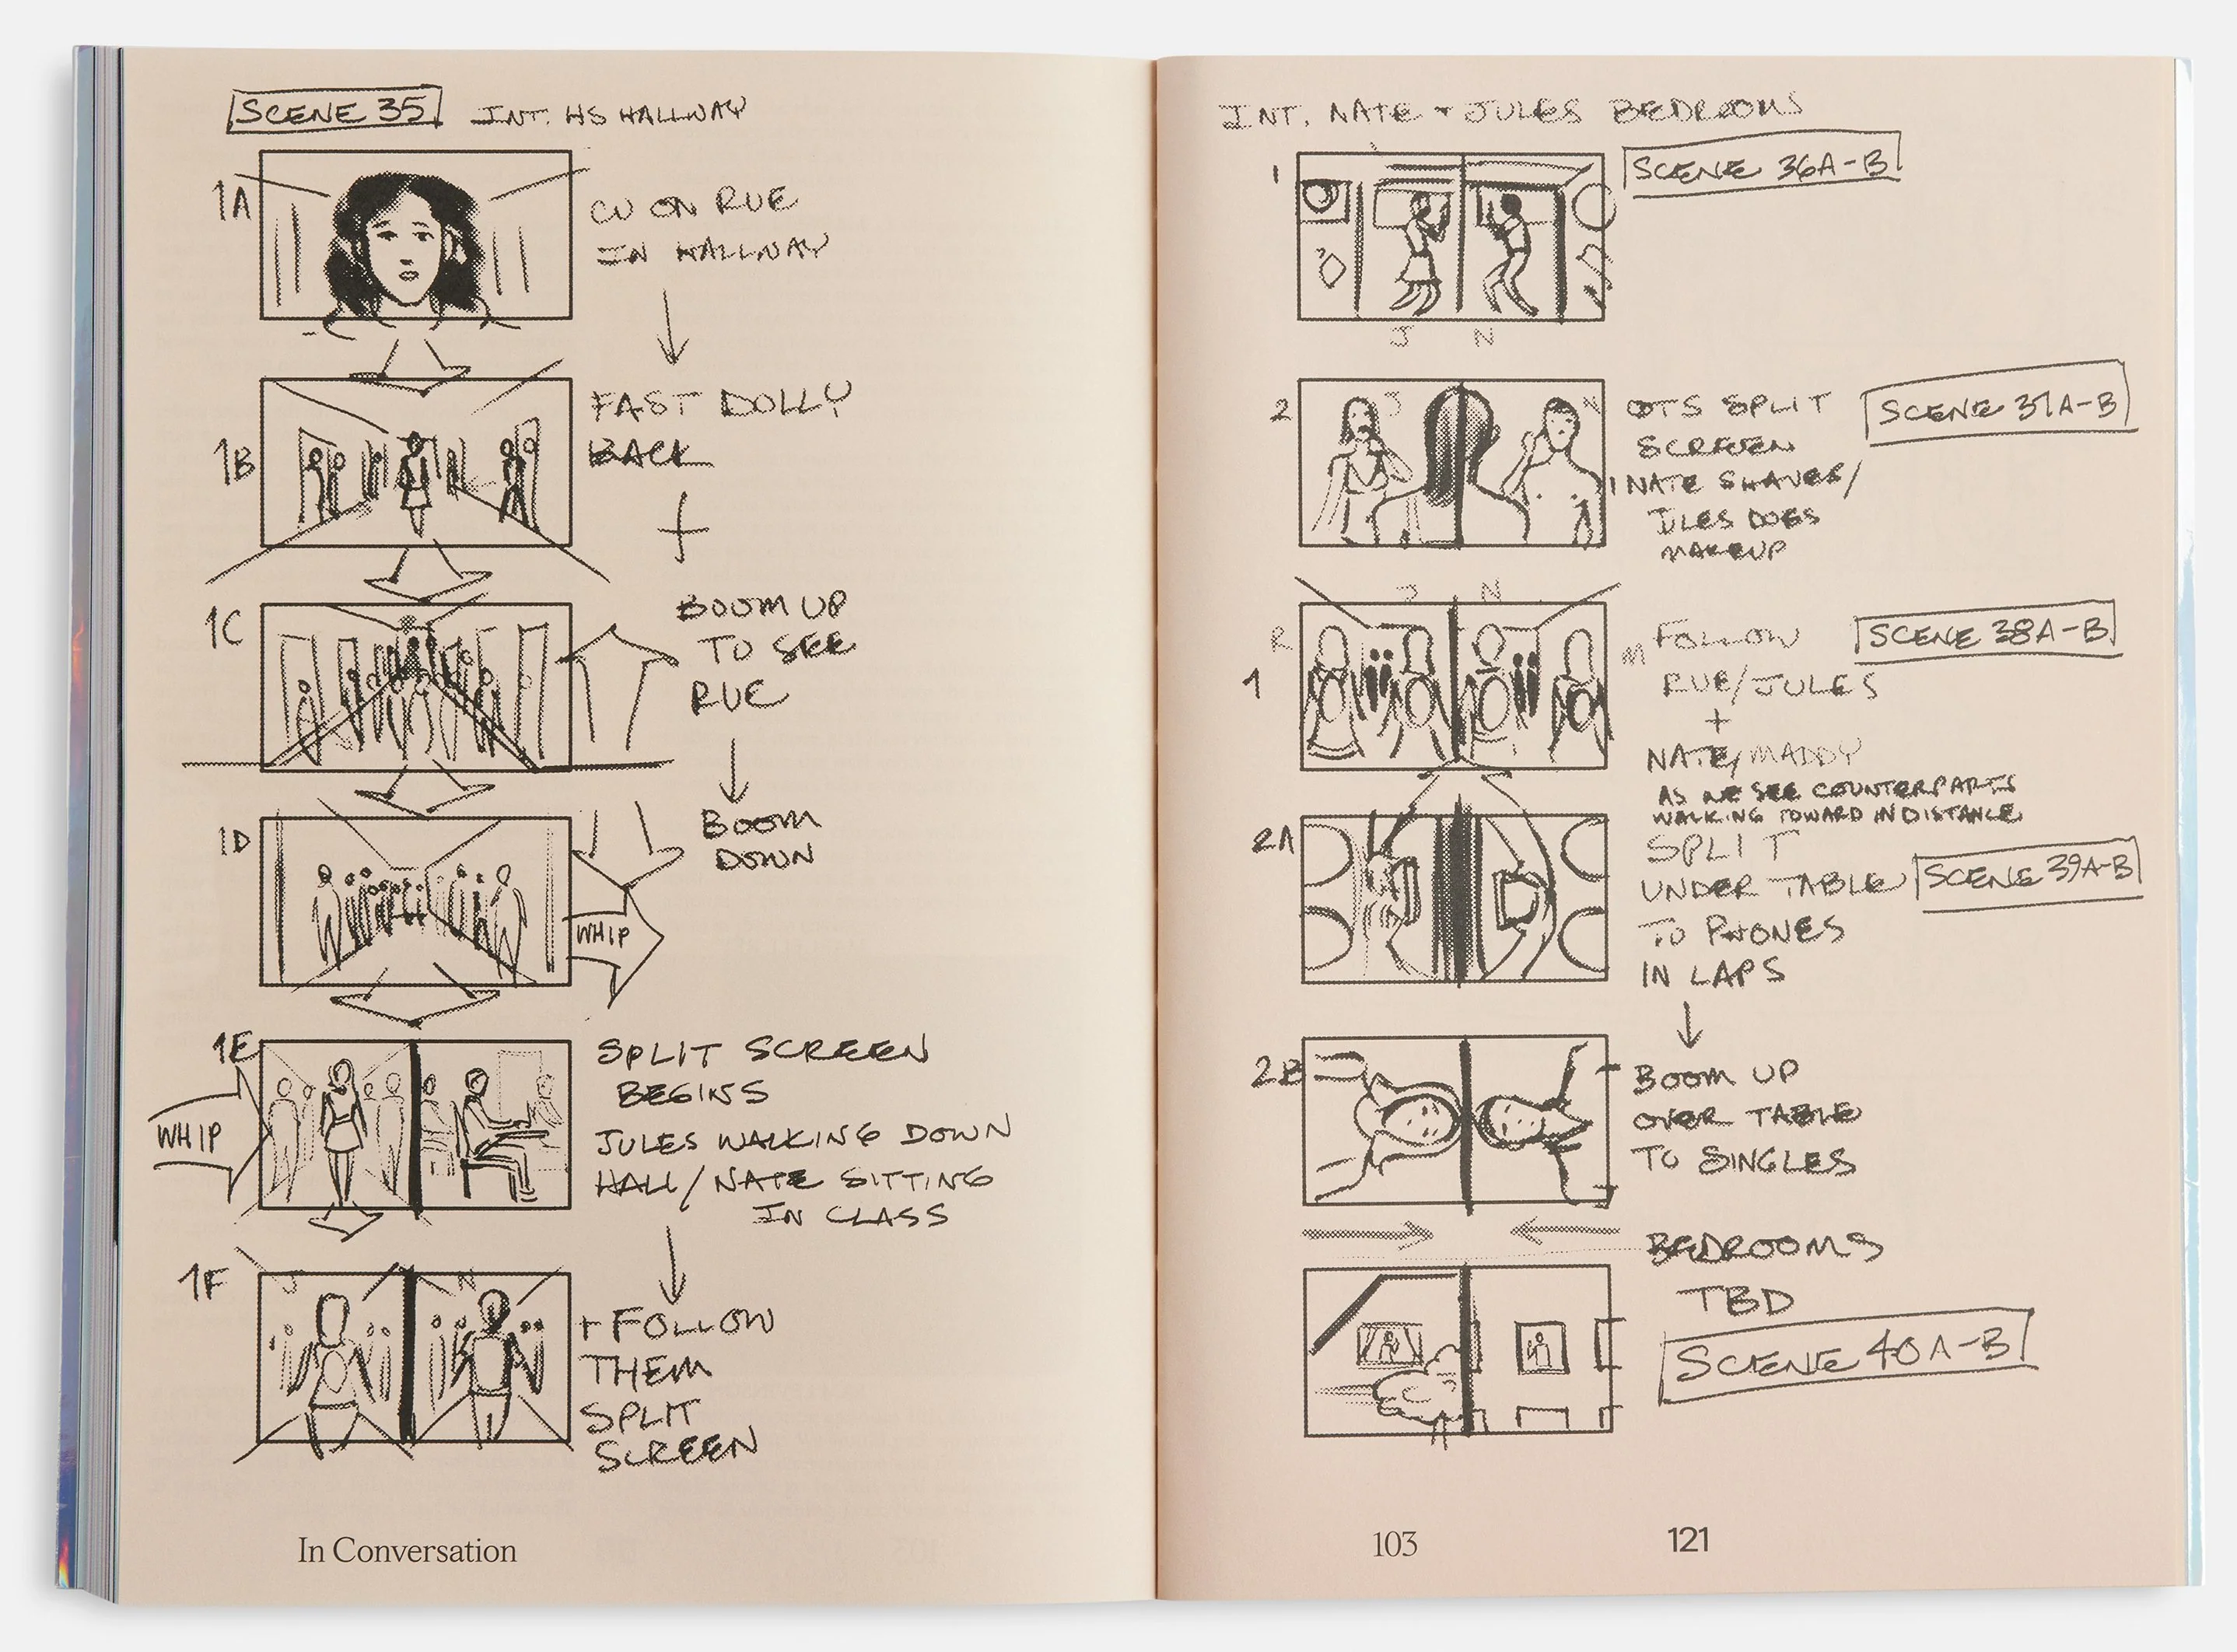 SCENE 35 INT. HS HALLWAY
1A
CU ON RUE
IN HALLWAY
1B
FAST DOLLY
BACK
+
1C
BOOM UP
TO SEE
RUE
1D
BOOM
DOWN
WHIP
1E
WHIP
SPLIT SCREEN
BEGINS
JULES WALKING DOWN
HALL/NATE SITTING
IN CLASS
1F
J N
+ FOLLOW
THEM
SPLIT
SCREEN
In Conversation
INT. NATE + JULES BEDROOMS
SCENE 36A-B
1
J N
2
J N
OTS SPLIT
SCREEN
NATE SHAVES/
JULES DOES
MAKEUP
SCENE 37A-B
J N
R M
1
FOLLOW
RUE/JULES
+
NATE/MADDY
AS WE SEE COUNTERPARTS
WALKING TOWARD IN DISTANCE
SCENE 38A-B
2A
SPLIT
UNDER TABLE
TO PHONES
IN LAPS
SCENE 39A-B
2B
BOOM UP
OVER TABLE
TO SINGLES
BEDROOMS
TBD
SCENE 40A-B
103 121